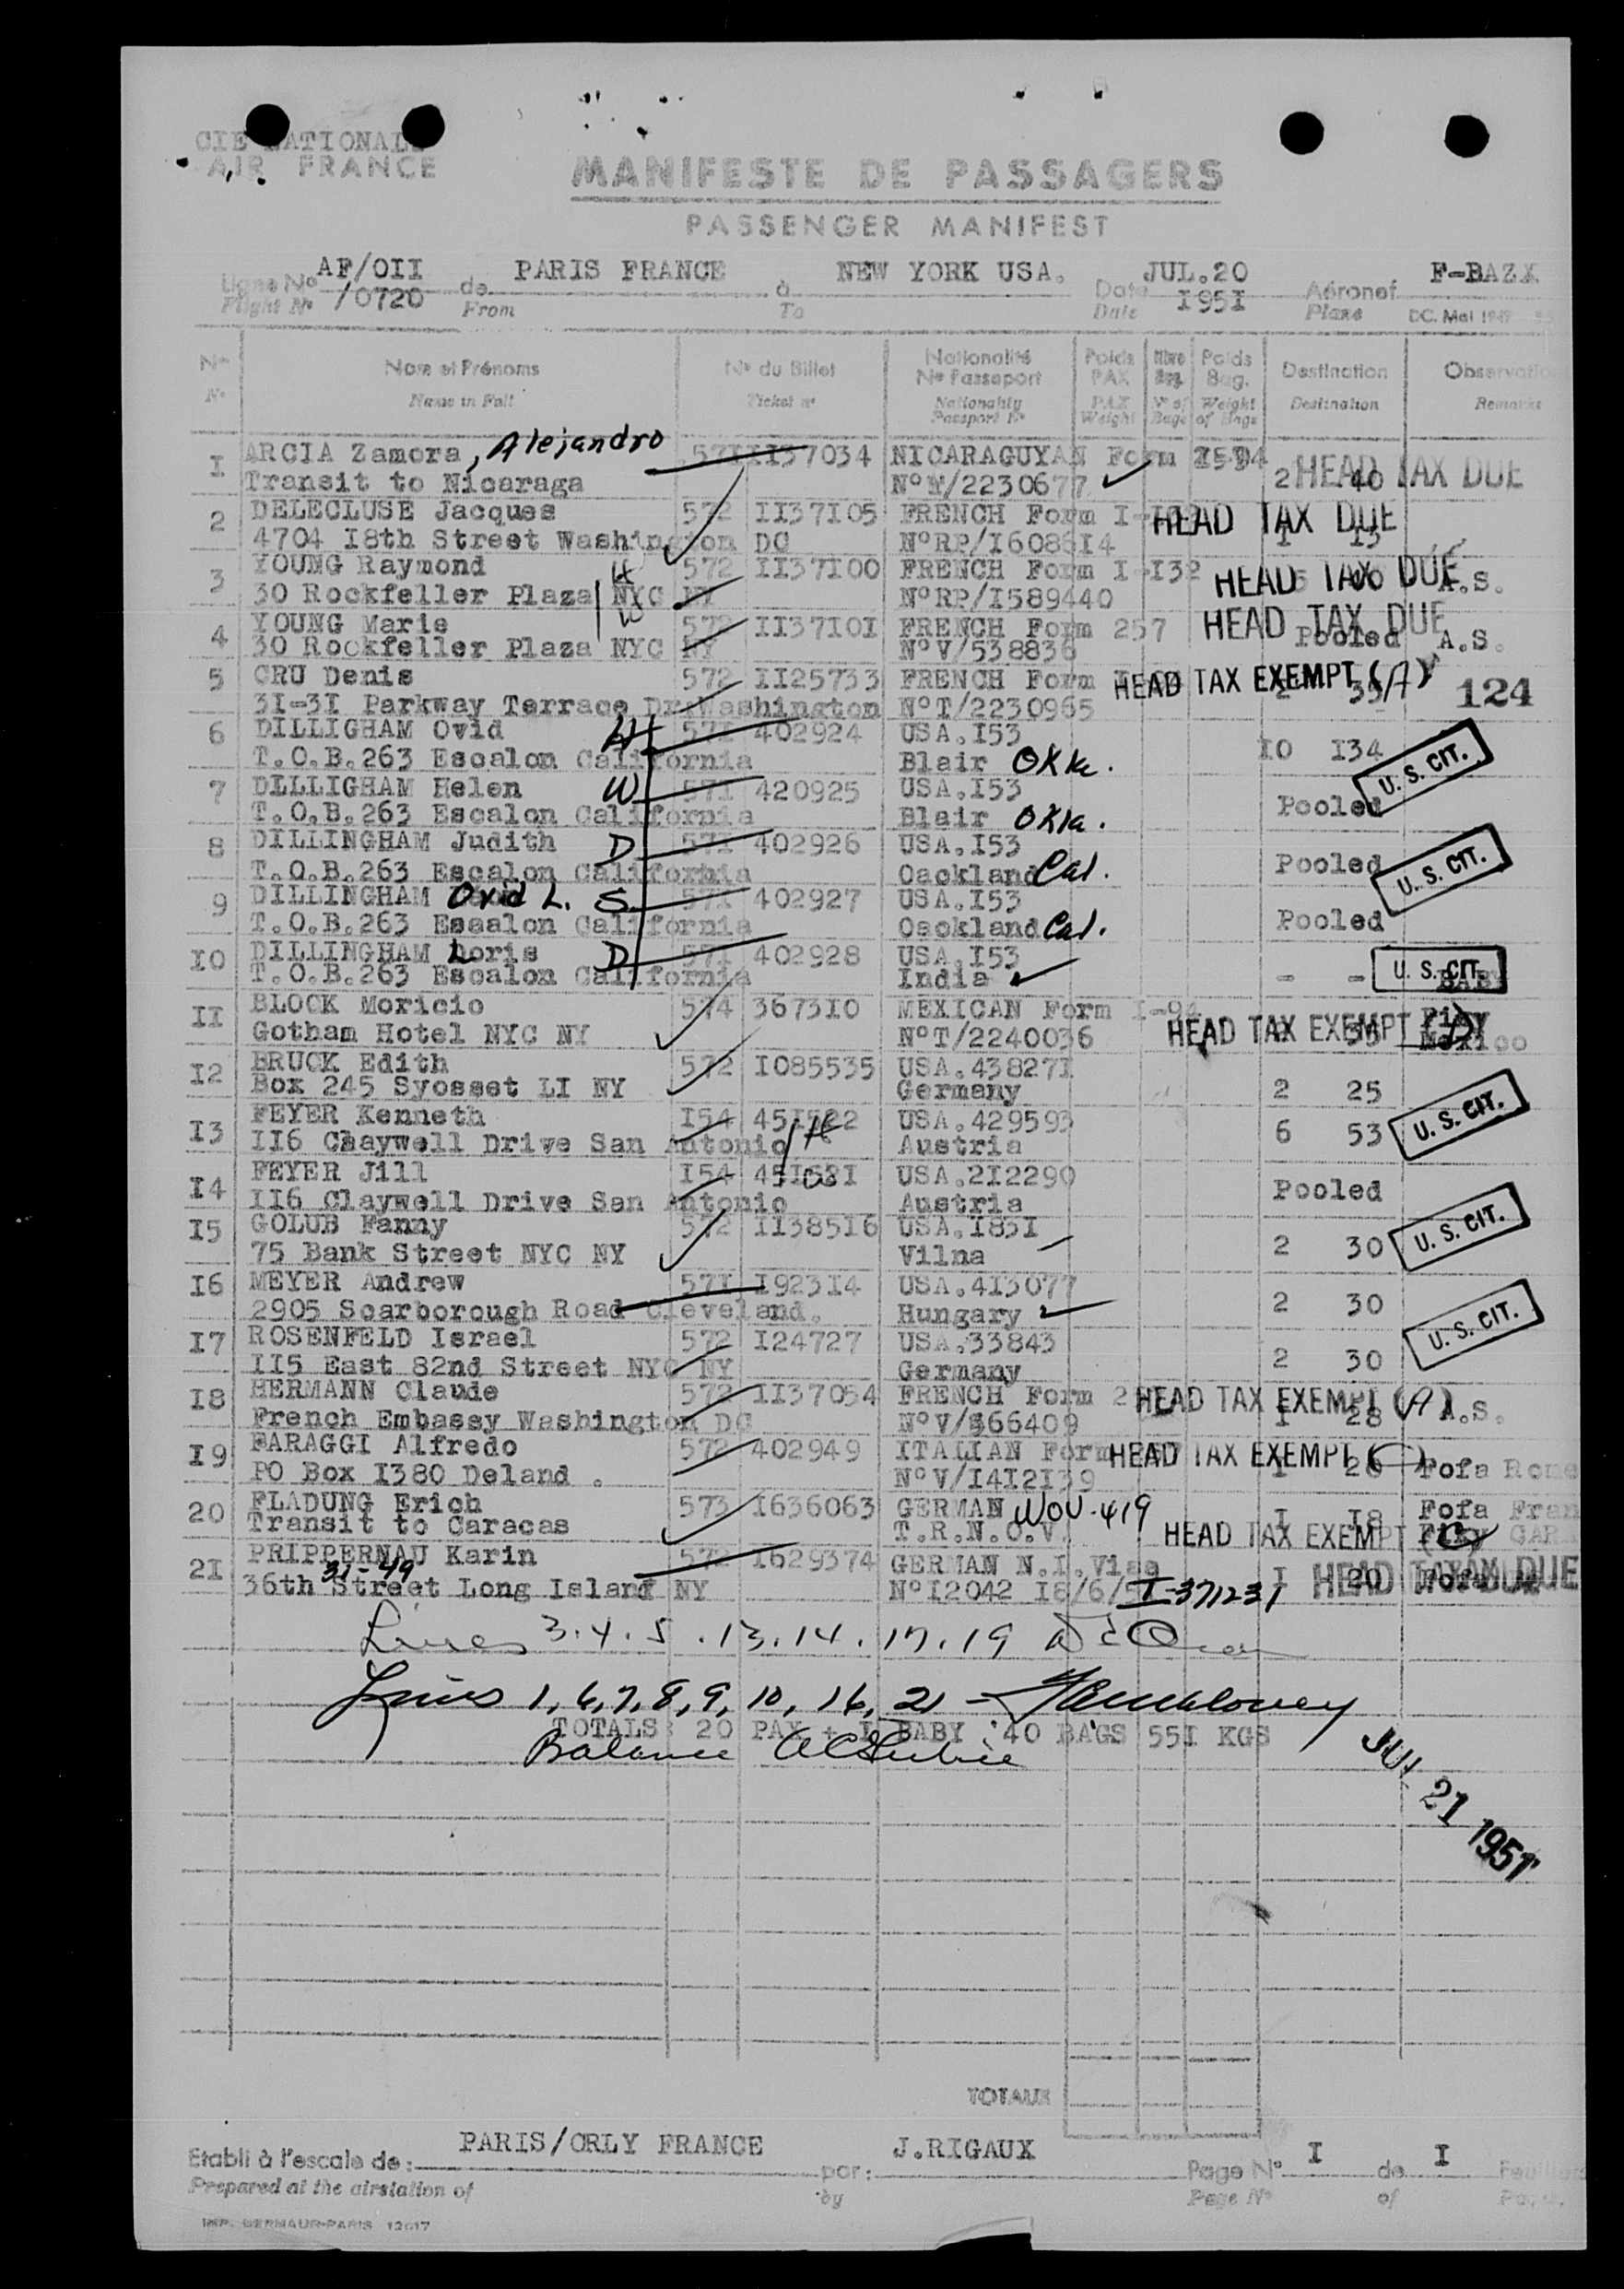 CIE NATIONALE
AIR FRANCE
MANIFESTE DE PASSAGERS
PASSENGER MANIFEST
Ligne No AF/OII de PARIS FRANCE à NEW YORK USA. Date JUL.20 Aéronef F-BAZX
Flight No /0720 From To Date I95I Plane DC. Mai 1949
No Nom et Prénoms No du Billet Nationalité Poids Nbre Poids Destination Observations
No Passeport PAX Bag. Bag.
No Name in Full Ticket no Nationality PAX No of Weight Destination Remarks
Passport No Weight Bags of Bags
I ARCIA Zamora, Alejandro 57I II37034 NICARAGUYAN Form
Transit to Nicaraga No T/2230677 2 40 HEAD TAX DUE
2 DELECLUSE Jacques 572 II37I05 FRENCH Form HEAD TAX DUE
4704 I8th Street Washington DC NoRP/I608614 I I5
3 YOUNG Raymond H 572 II37I00 FRENCH Form I-I32 HEAD TAX DUE A.S.
30 Rockfeller Plaza NYC NY NoRP/I589440
4 YOUNG Marie W 572 II37I0I FRENCH Form 257 HEAD TAX DUE
30 Rockfeller Plaza NYC NY NoV/538836 Pooled A.S.
5 CRU Denis 572 II25733 FRENCH Form HEAD TAX EXEMPT (A)
3I-3I Parkway Terrace Dr.Washington NoT/2230965 124
6 DILLIGHAM Ovid H 57I 402924 USA.I53
T.O.B.263 Escalon California Blair Okla. I0 I34 U. S. CIT.
7 DILLIGHAM Helen W 57I 420925 USA.I53
T.O.B.263 Escalon California Blair Okla. Pooled
8 DILLINGHAM Judith D 57I 402926 USA.I53
T.O.B.263 Escalon California Oackland Cal. Pooled U. S. CIT.
9 DILLINGHAM Ovid L. S. 57I 402927 USA.I53
T.O.B.263 Esaalon California Oackland Cal. Pooled
I0 DILLINGHAM Loris D 57I 402928 USA.I53
T.O.B.263 Escalon California India - - U. S. CIT. BABY
II BLOCK Moricio 574 3673I0 MEXICAN Form I-94
Gotham Hotel NYC NY NoT/2240036 HEAD TAX EXEMPT Mexico
I2 BRUCK Edith 572 I085535 USA.43827I
Box 245 Syosset LI NY Germany 2 25
I3 FEYER Kenneth I54 45I522 USA.429593
II6 Chaywell Drive San Antonio H Austria 6 53 U. S. CIT.
I4 FEYER Jill I54 USA.2I2290
II6 Claywell Drive San Antonio Austria Pooled
I5 GOLUB Fanny 572 II385I6 USA.I83I
75 Bank Street NYC NY Vilna 2 30 U. S. CIT.
I6 MEYER Andrew 57I I923I4 USA.4I3077
2905 Scarborough Road Cleveland. Hungary 2 30
I7 ROSENFELD Israel 572 I24727 USA.33843 U. S. CIT.
II5 East 82nd Street NYC NY Germany 2 30
I8 HERMANN Claude 572 II37054 FRENCH Form 2 HEAD TAX EXEMPT (A)
French Embassy Washington DC NoV/366409 I 28 A.S.
I9 FARAGGI Alfredo 572 402949 ITALIAN Form HEAD TAX EXEMPT
PO Box I380 Deland . NoV/I4I2I39 I 26 Fofa Rone
20 FLADUNG Erich 573 I636063 GERMAN WOV-419 I I8 Fofa Fran
Transit to Caracas T.R.N.O.V. HEAD TAX EXEMPT
2I PRIPPERNAU Karin 572 I629374 GERMAN N.I.Visa
31-49 36th Street Long Island NY NoI2042 I8/6/5 I-371231 I 20 HEAD TAX DUE
Lines 3.4.5.13.14.17.19
Lines 1, 6, 7, 8, 9, 10, 16, 21 -
TOTALS: 20 PAX + I BABY 40 BAGS 55I KGS
Balance
JUL 21 1951
TOTAUX
Etabli à l'escale de: PARIS/ORLY FRANCE par: J.RIGAUX Page No I de I
Prepared at the airstation of by Page No of
IMP. BERMAUR-PARIS 12617